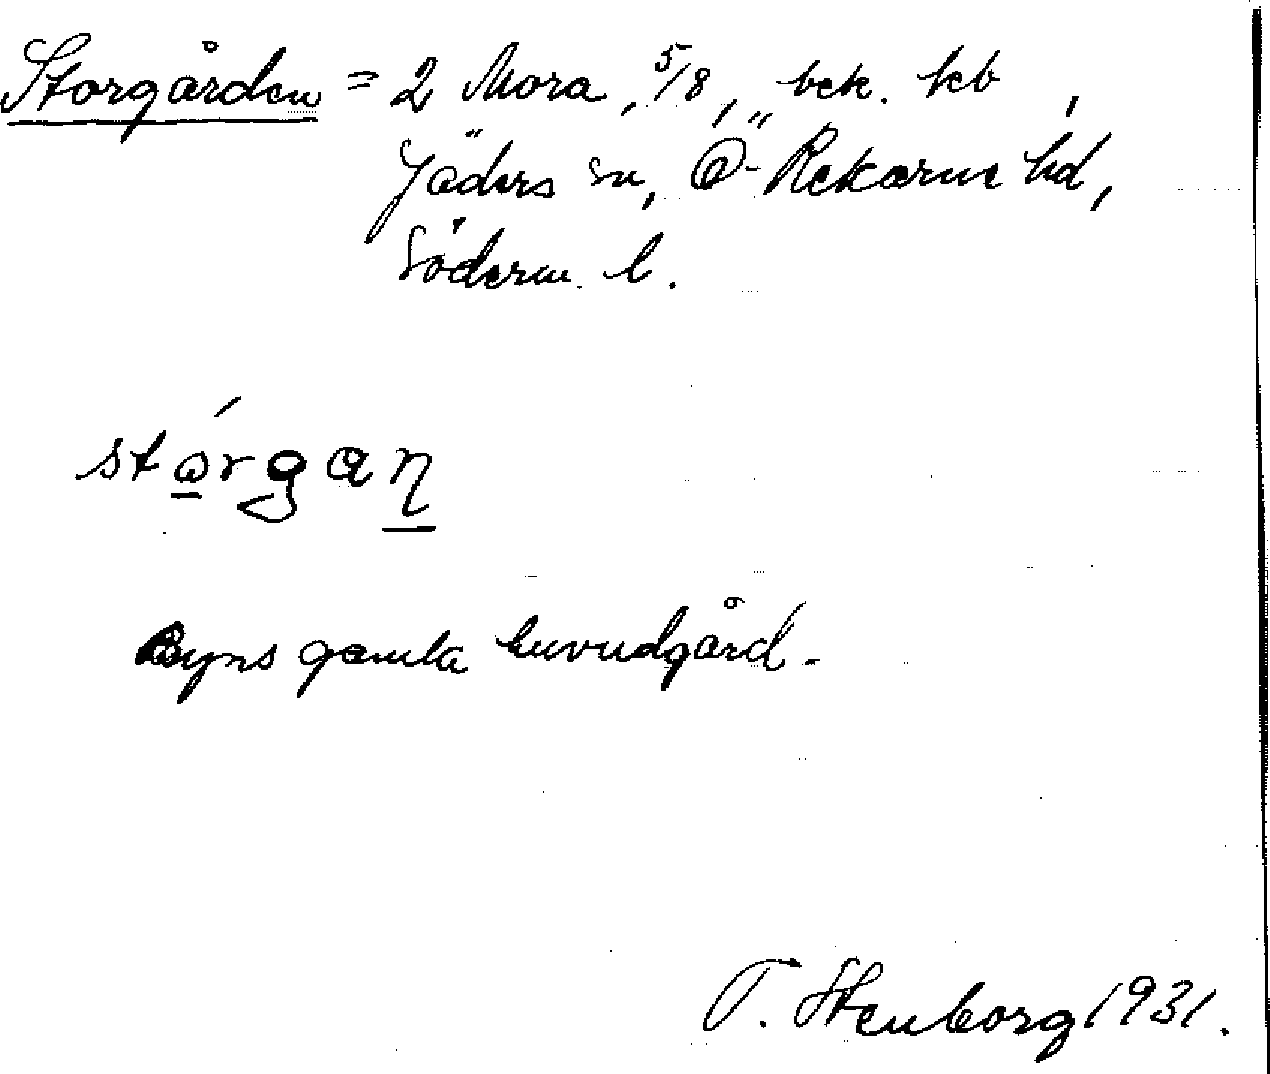 Storgården = 2 Mora, 5/8, bek. kb,
Jäders sn, Ö-Rekarne hd,
Söderm. l.
stórgaɳ
Byns gamla huvudgård.
T. Stenborg 1931.